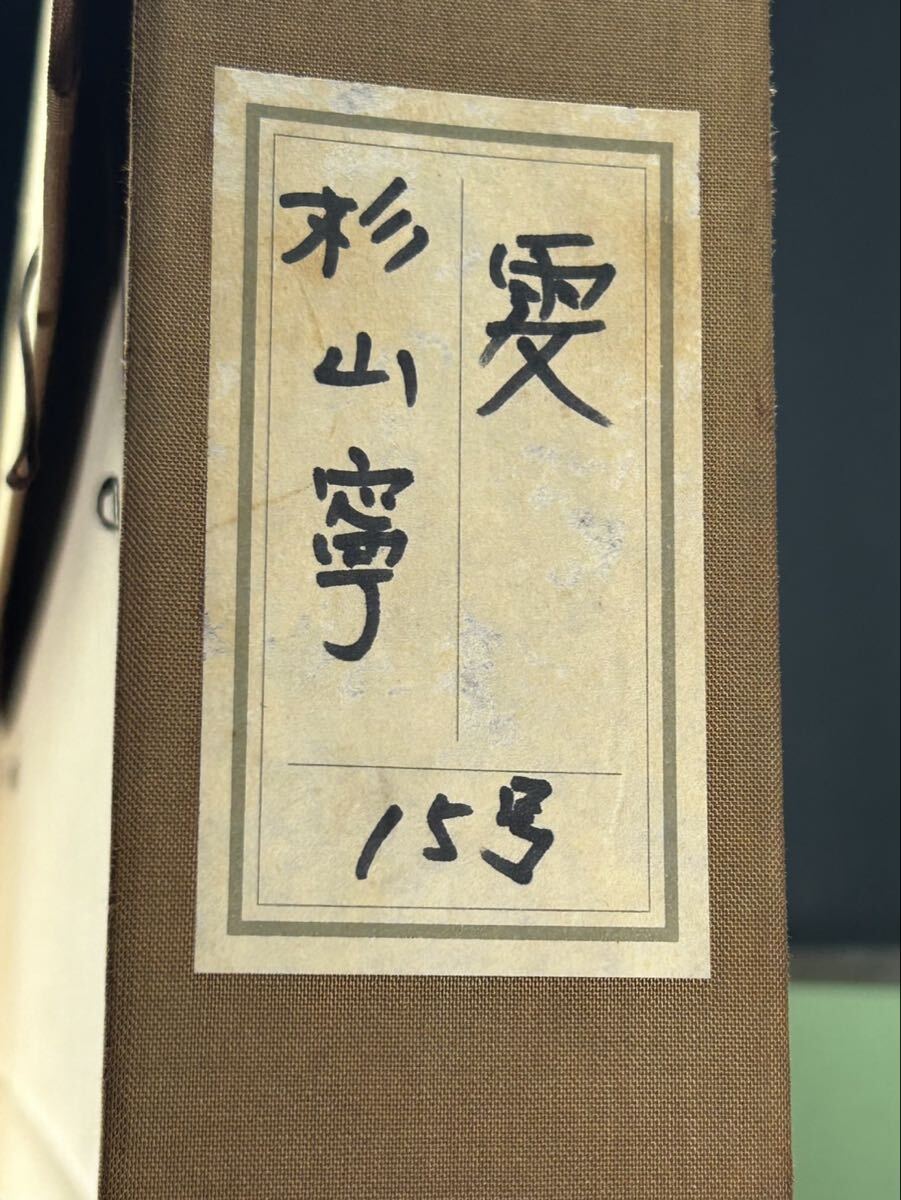 雯
杉山寧
15号